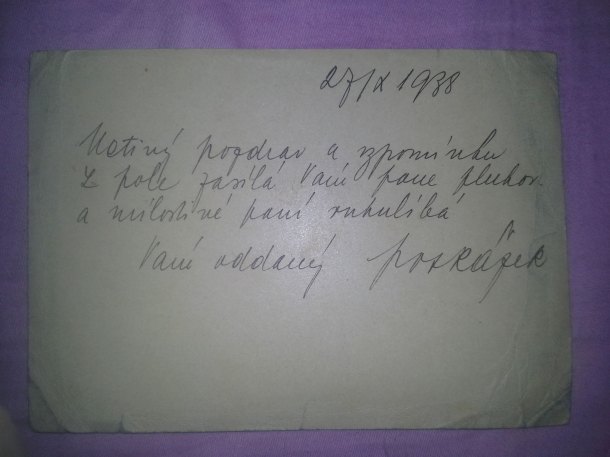 27/IX 1938
Uctivý pozdrav a vzpomínku
z pole zasílá Vám pane plukov.
a milostivé paní rukulíbá
Vám oddaný